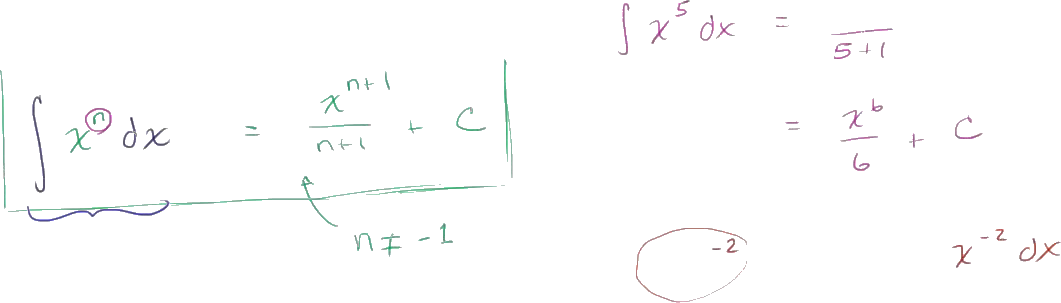 ∫ xⁿ dx = xⁿ⁺¹/(n+1) + C
n ≠ -1
∫ x⁵ dx = /(5+1)
= x⁶/6 + C
-2
x⁻² dx